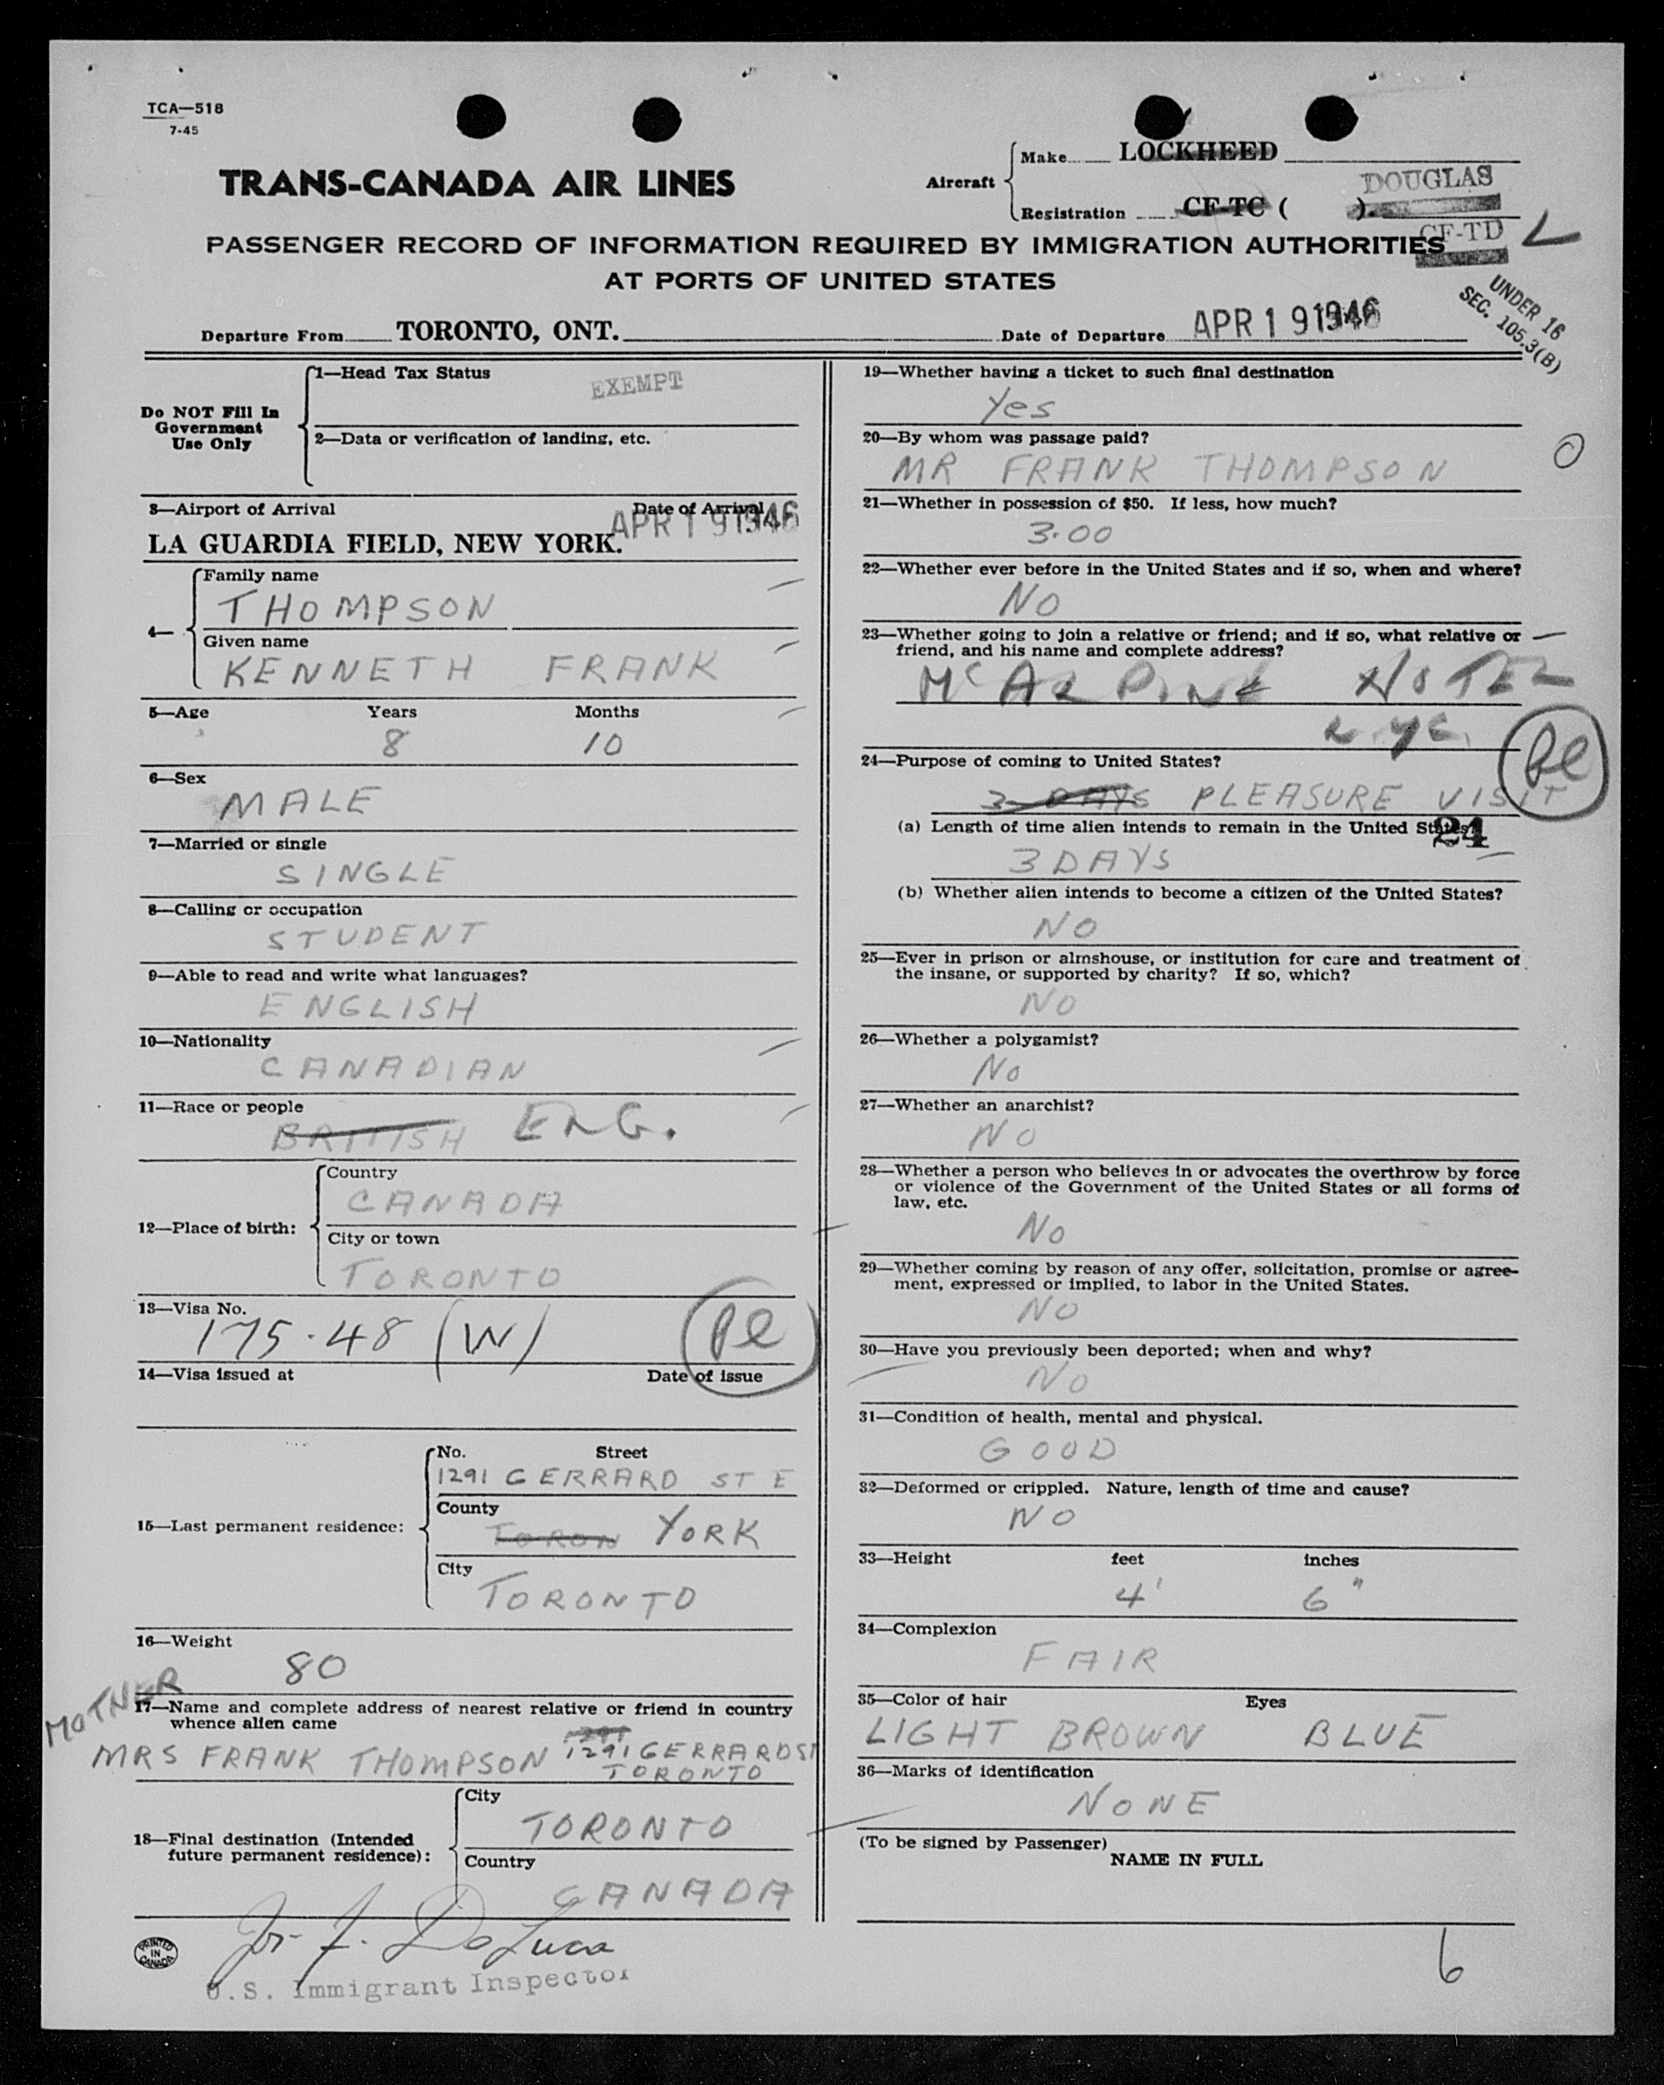 TCA—518
7-45
TRANS-CANADA AIR LINES
Aircraft
Make LOCKHEED
DOUGLAS
Registration CF-TC ( ).
CF-TD
PASSENGER RECORD OF INFORMATION REQUIRED BY IMMIGRATION AUTHORITIES
AT PORTS OF UNITED STATES
UNDER 16
SEC. 105.3(B)
Departure From TORONTO, ONT.
Date of Departure APR 19 1946
Do NOT Fill In
Government
Use Only
1—Head Tax Status
EXEMPT
2—Data or verification of landing, etc.
3—Airport of Arrival Date of Arrival
LA GUARDIA FIELD, NEW YORK. APR 19 1946
4—
Family name
THOMPSON
Given name
KENNETH FRANK
5—Age Years Months
8 10
6—Sex
MALE
7—Married or single
SINGLE
8—Calling or occupation
STUDENT
9—Able to read and write what languages?
ENGLISH
10—Nationality
CANADIAN
11—Race or people
BRITISH ENG.
12—Place of birth:
Country
CANADA
City or town
TORONTO
13—Visa No.
175.48 (W)
14—Visa issued at Date of issue
15—Last permanent residence:
No. Street
1291 GERRARD ST E
County
TORON YORK
City
TORONTO
16—Weight
80
MOTHER
17—Name and complete address of nearest relative or friend in country
whence alien came
MRS FRANK THOMPSON 1291 GERRARD ST
TORONTO
18—Final destination (Intended
future permanent residence):
City
TORONTO
Country
CANADA
Jos. F. DeLuca
U.S. Immigrant Inspector
PRINTED
IN
CANADA
19—Whether having a ticket to such final destination
Yes
20—By whom was passage paid?
MR FRANK THOMPSON
21—Whether in possession of $50. If less, how much?
3.00
22—Whether ever before in the United States and if so, when and where?
NO
23—Whether going to join a relative or friend; and if so, what relative or
friend, and his name and complete address?
McALPINE HOTEL
N.Y.C.
24—Purpose of coming to United States?
3 DAYS PLEASURE VISIT
(a) Length of time alien intends to remain in the United States?
24
3 DAYS
(b) Whether alien intends to become a citizen of the United States?
NO
25—Ever in prison or almshouse, or institution for care and treatment of
the insane, or supported by charity? If so, which?
NO
26—Whether a polygamist?
No
27—Whether an anarchist?
NO
28—Whether a person who believes in or advocates the overthrow by force
or violence of the Government of the United States or all forms of
law, etc.
No
29—Whether coming by reason of any offer, solicitation, promise or agree-
ment, expressed or implied, to labor in the United States.
NO
30—Have you previously been deported; when and why?
No
31—Condition of health, mental and physical.
GOOD
32—Deformed or crippled. Nature, length of time and cause?
NO
33—Height feet inches
4' 6"
34—Complexion
FAIR
35—Color of hair Eyes
LIGHT BROWN BLUE
36—Marks of identification
NONE
(To be signed by Passenger)
NAME IN FULL
6